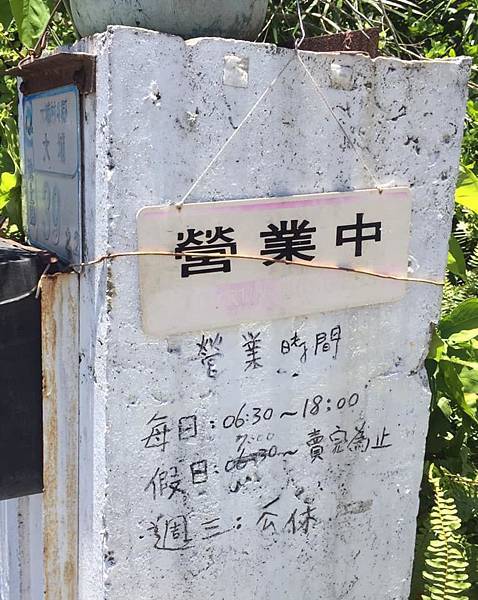 大埔
39
營業中
營業時間
每日:06:30~18:00
7:00
假日:06:30~賣完為止
週三:公休